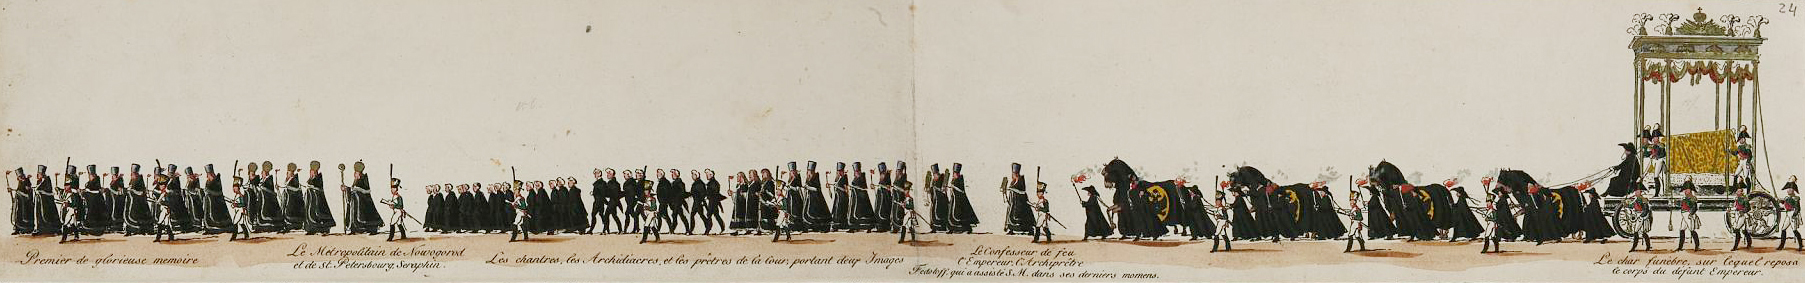 24
Premier de glorieuse memoire
Le Metropolitain de Nowogorod
et de St. Petersbourg, Seraphin.
Les chantres, les Archidiacres, et les prêtres de la cour, portant deux Images
Le Confesseur de feu
l'Empereur, l'Archiprêtre
Fedotoff, qui a assisté S. M. dans ses derniers momens.
Le char funèbre, sur lequel reposa
le corps du defunt Empereur.